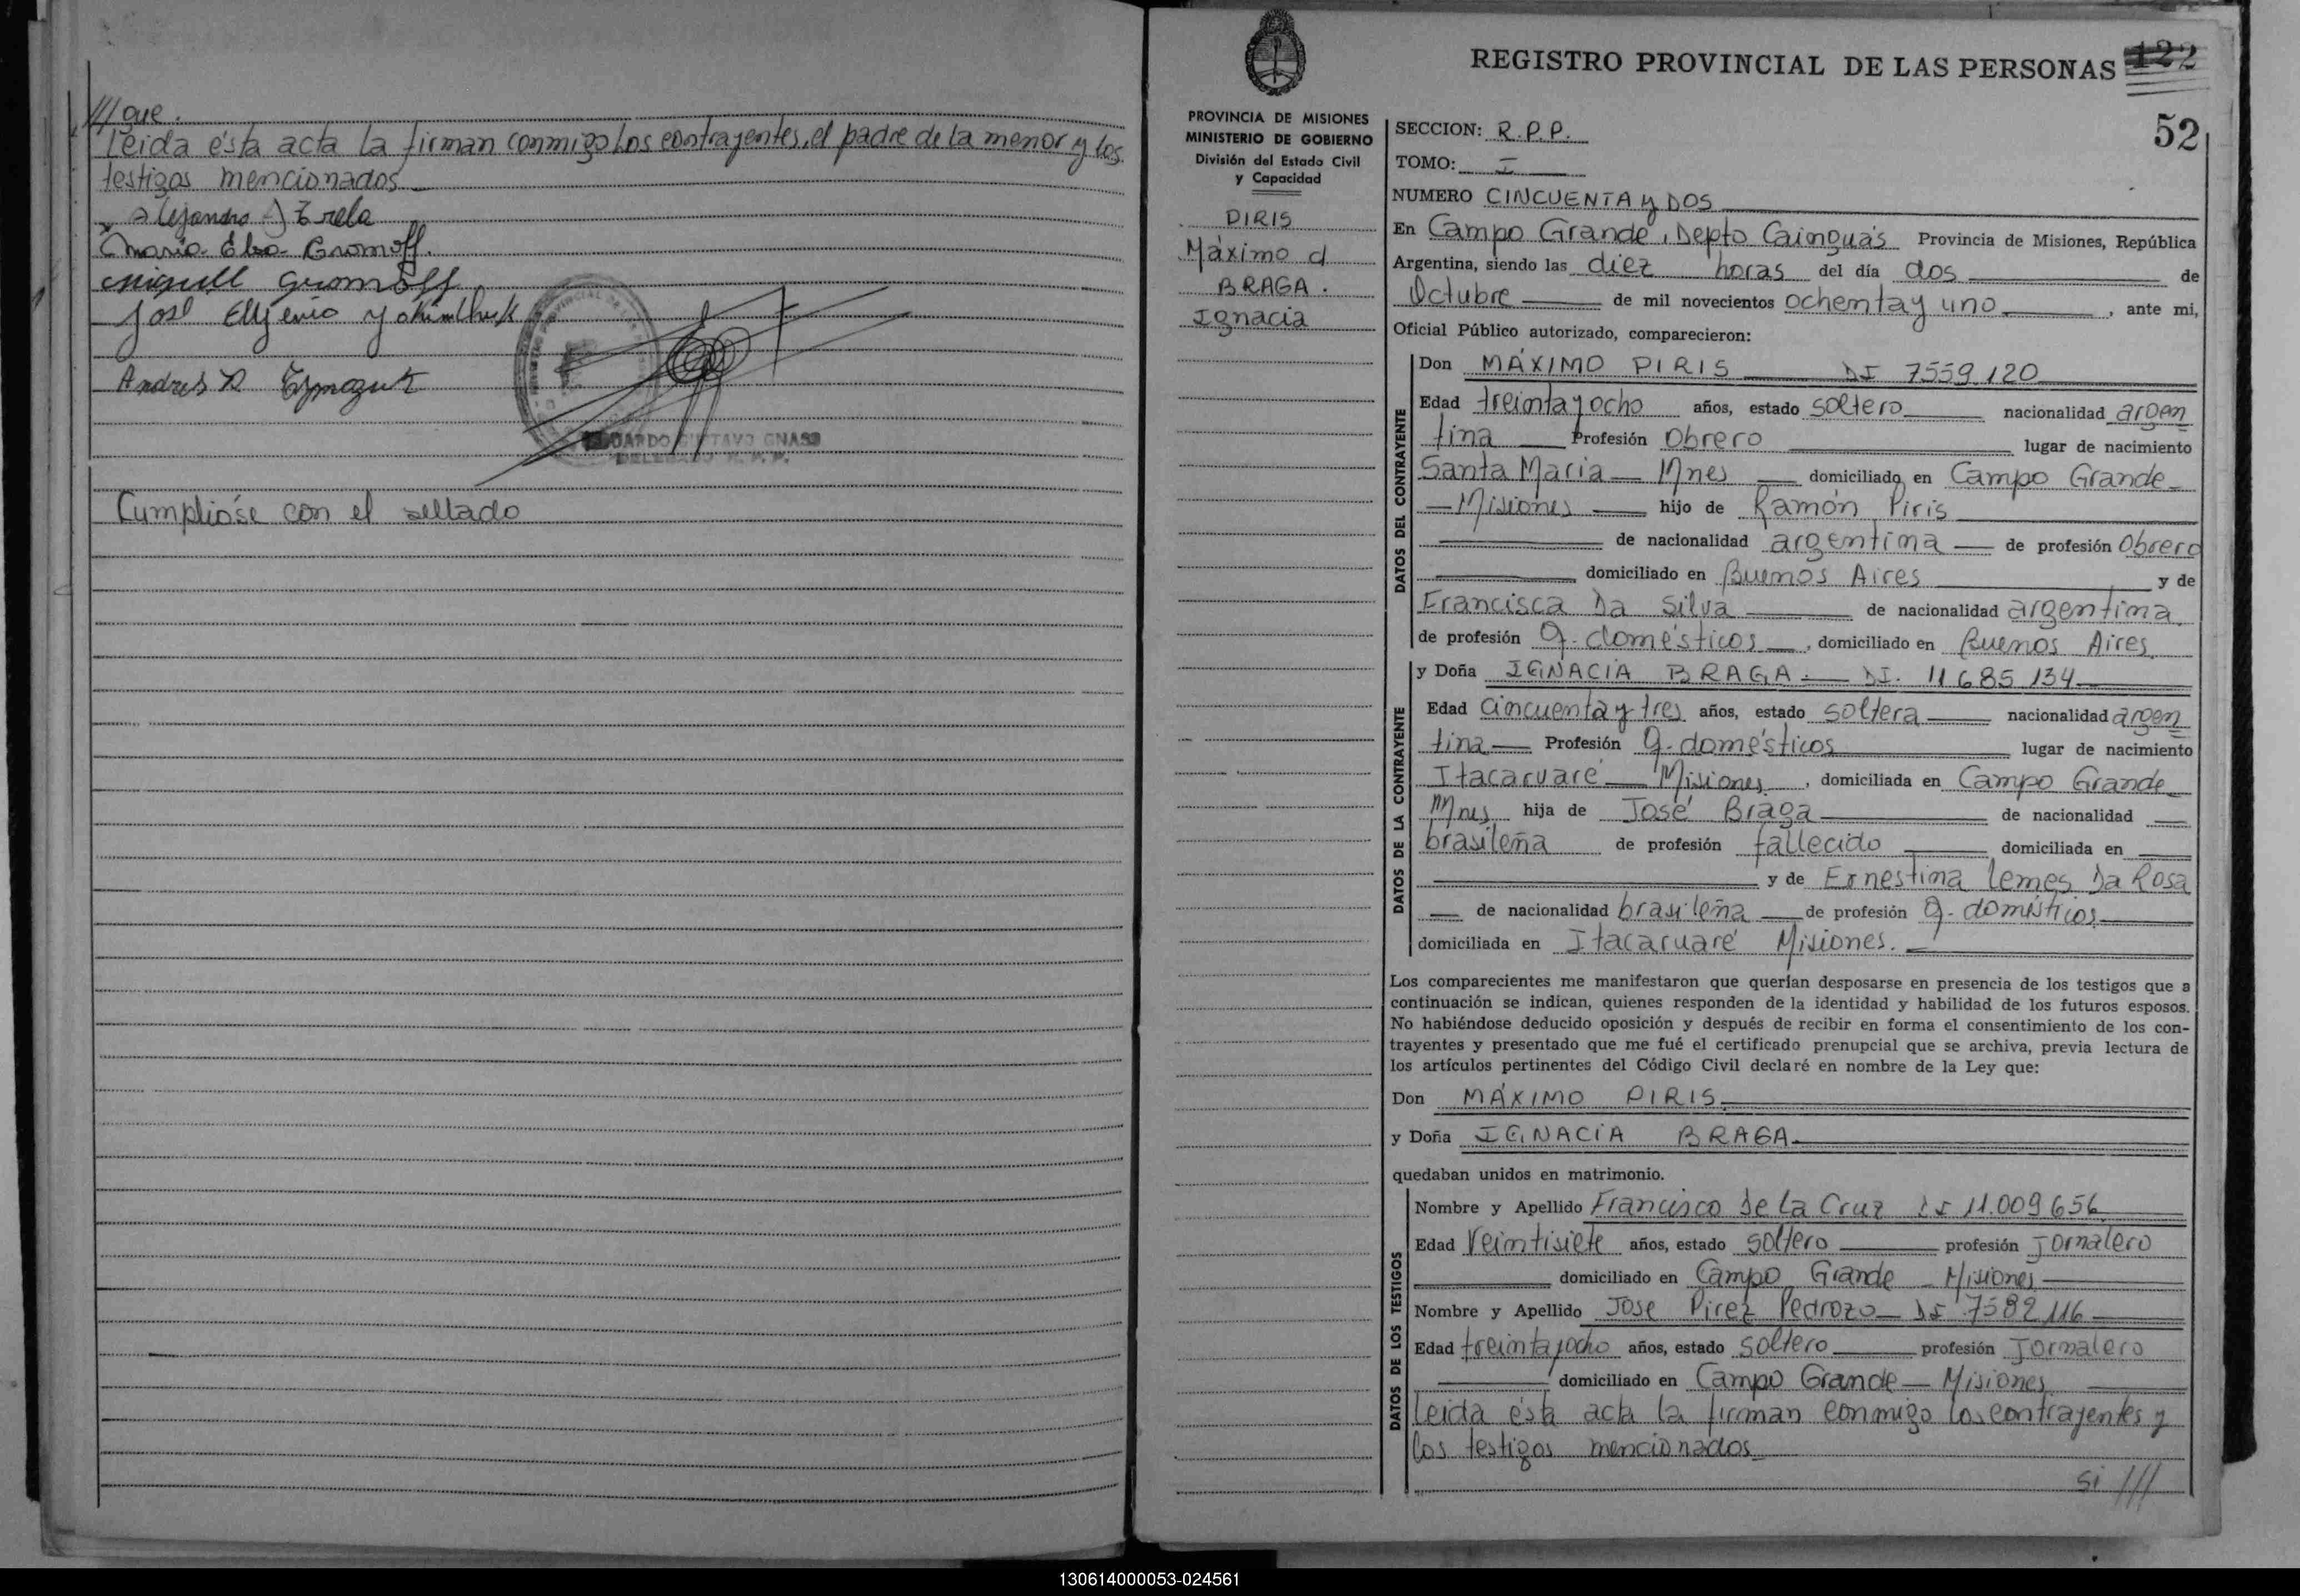 /// que.
Leida ésta acta la firman conmigo los contrayentes, el padre de la menor y los
testigos mencionados
Alejandro
Maria Elsa Gromoff.
Gromoff
José Eugenio
Andres
EDUARDO GUSTAVO GNASS
DELEGADO R. P. P.
Cumplióse con el sellado
REGISTRO PROVINCIAL DE LAS PERSONAS 122
52
PROVINCIA DE MISIONES
MINISTERIO DE GOBIERNO
División del Estado Civil
y Capacidad
PIRIS
Máximo c/
BRAGA.
Ignacia
SECCION: R.P.P.
TOMO: I
NUMERO CINCUENTA y DOS
En Campo Grande, Depto Cainguás Provincia de Misiones, República
Argentina, siendo las diez horas del día dos de
Octubre de mil novecientos ochenta y uno, ante mi,
Oficial Público autorizado, comparecieron:
DATOS DEL CONTRAYENTE
Don MÁXIMO PIRIS DI 7559.120
Edad treinta y ocho años, estado soltero nacionalidad argen
tina Profesión Obrero lugar de nacimiento
Santa Maria - Mnes domiciliado en Campo Grande
- Misiones hijo de Ramón Piris
de nacionalidad argentina de profesión Obrero
domiciliado en Buenos Aires y de
Francisca Da Silva de nacionalidad argentina.
de profesión q. domésticos, domiciliado en Buenos Aires
DATOS DE LA CONTRAYENTE
y Doña IGNACIA BRAGA DI. 11.685.134
Edad cincuenta y tres años, estado soltera nacionalidad argen
tina Profesión q. domésticos lugar de nacimiento
Itacaruaré Misiones, domiciliada en Campo Grande
Mnes hija de José Braga de nacionalidad
brasileña de profesión fallecido domiciliada en
y de Ernestina Lemes Da Rosa
de nacionalidad brasileña de profesión q. domésticos
domiciliada en Itacaruaré Misiones.
Los comparecientes me manifestaron que querían desposarse en presencia de los testigos que a
continuación se indican, quienes responden de la identidad y habilidad de los futuros esposos.
No habiéndose deducido oposición y después de recibir en forma el consentimiento de los con-
trayentes y presentado que me fué el certificado prenupcial que se archiva, previa lectura de
los artículos pertinentes del Código Civil declaré en nombre de la Ley que:
Don MÁXIMO PIRIS
y Doña IGNACIA BRAGA
quedaban unidos en matrimonio.
DATOS DE LOS TESTIGOS
Nombre y Apellido Francisco De La Cruz DI 11.009.656
Edad Veintisiete años, estado soltero profesión Jornalero
domiciliado en Campo Grande - Misiones
Nombre y Apellido Jose Pirez Pedrozo DI 7582.116
Edad treinta y ocho años, estado soltero profesión Jornalero
domiciliado en Campo Grande - Misiones
Leida ésta acta la firman conmigo los contrayentes y
los testigos mencionados
si ///
130614000053-024561